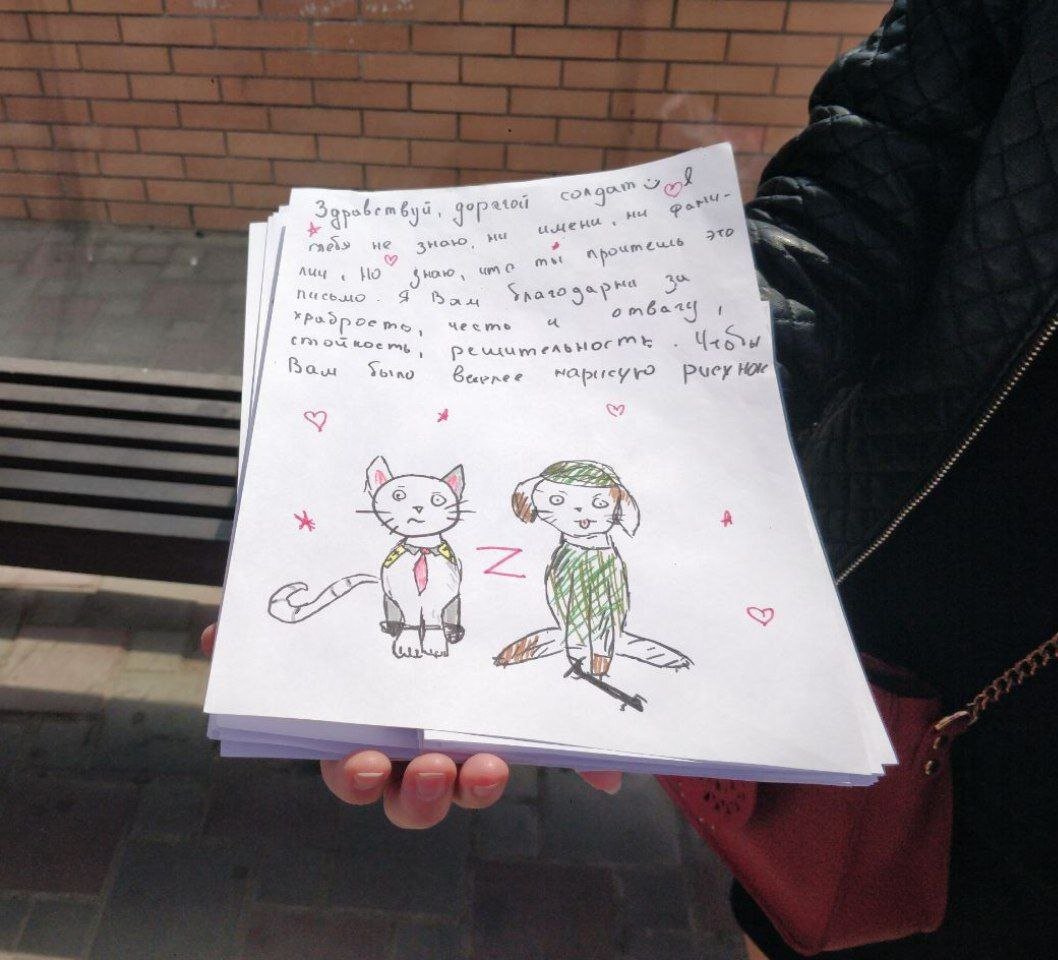 Здравствуй, дорогой солдат Я
тебя не знаю, ни имени, ни фами-
лии, но знаю, что ты проитешь это
письмо. Я Вам благодарна за
храбрость, честь и отвагу,
стойкость, решительность. Чтобы
Вам было веселее нарисую рисунок
Z